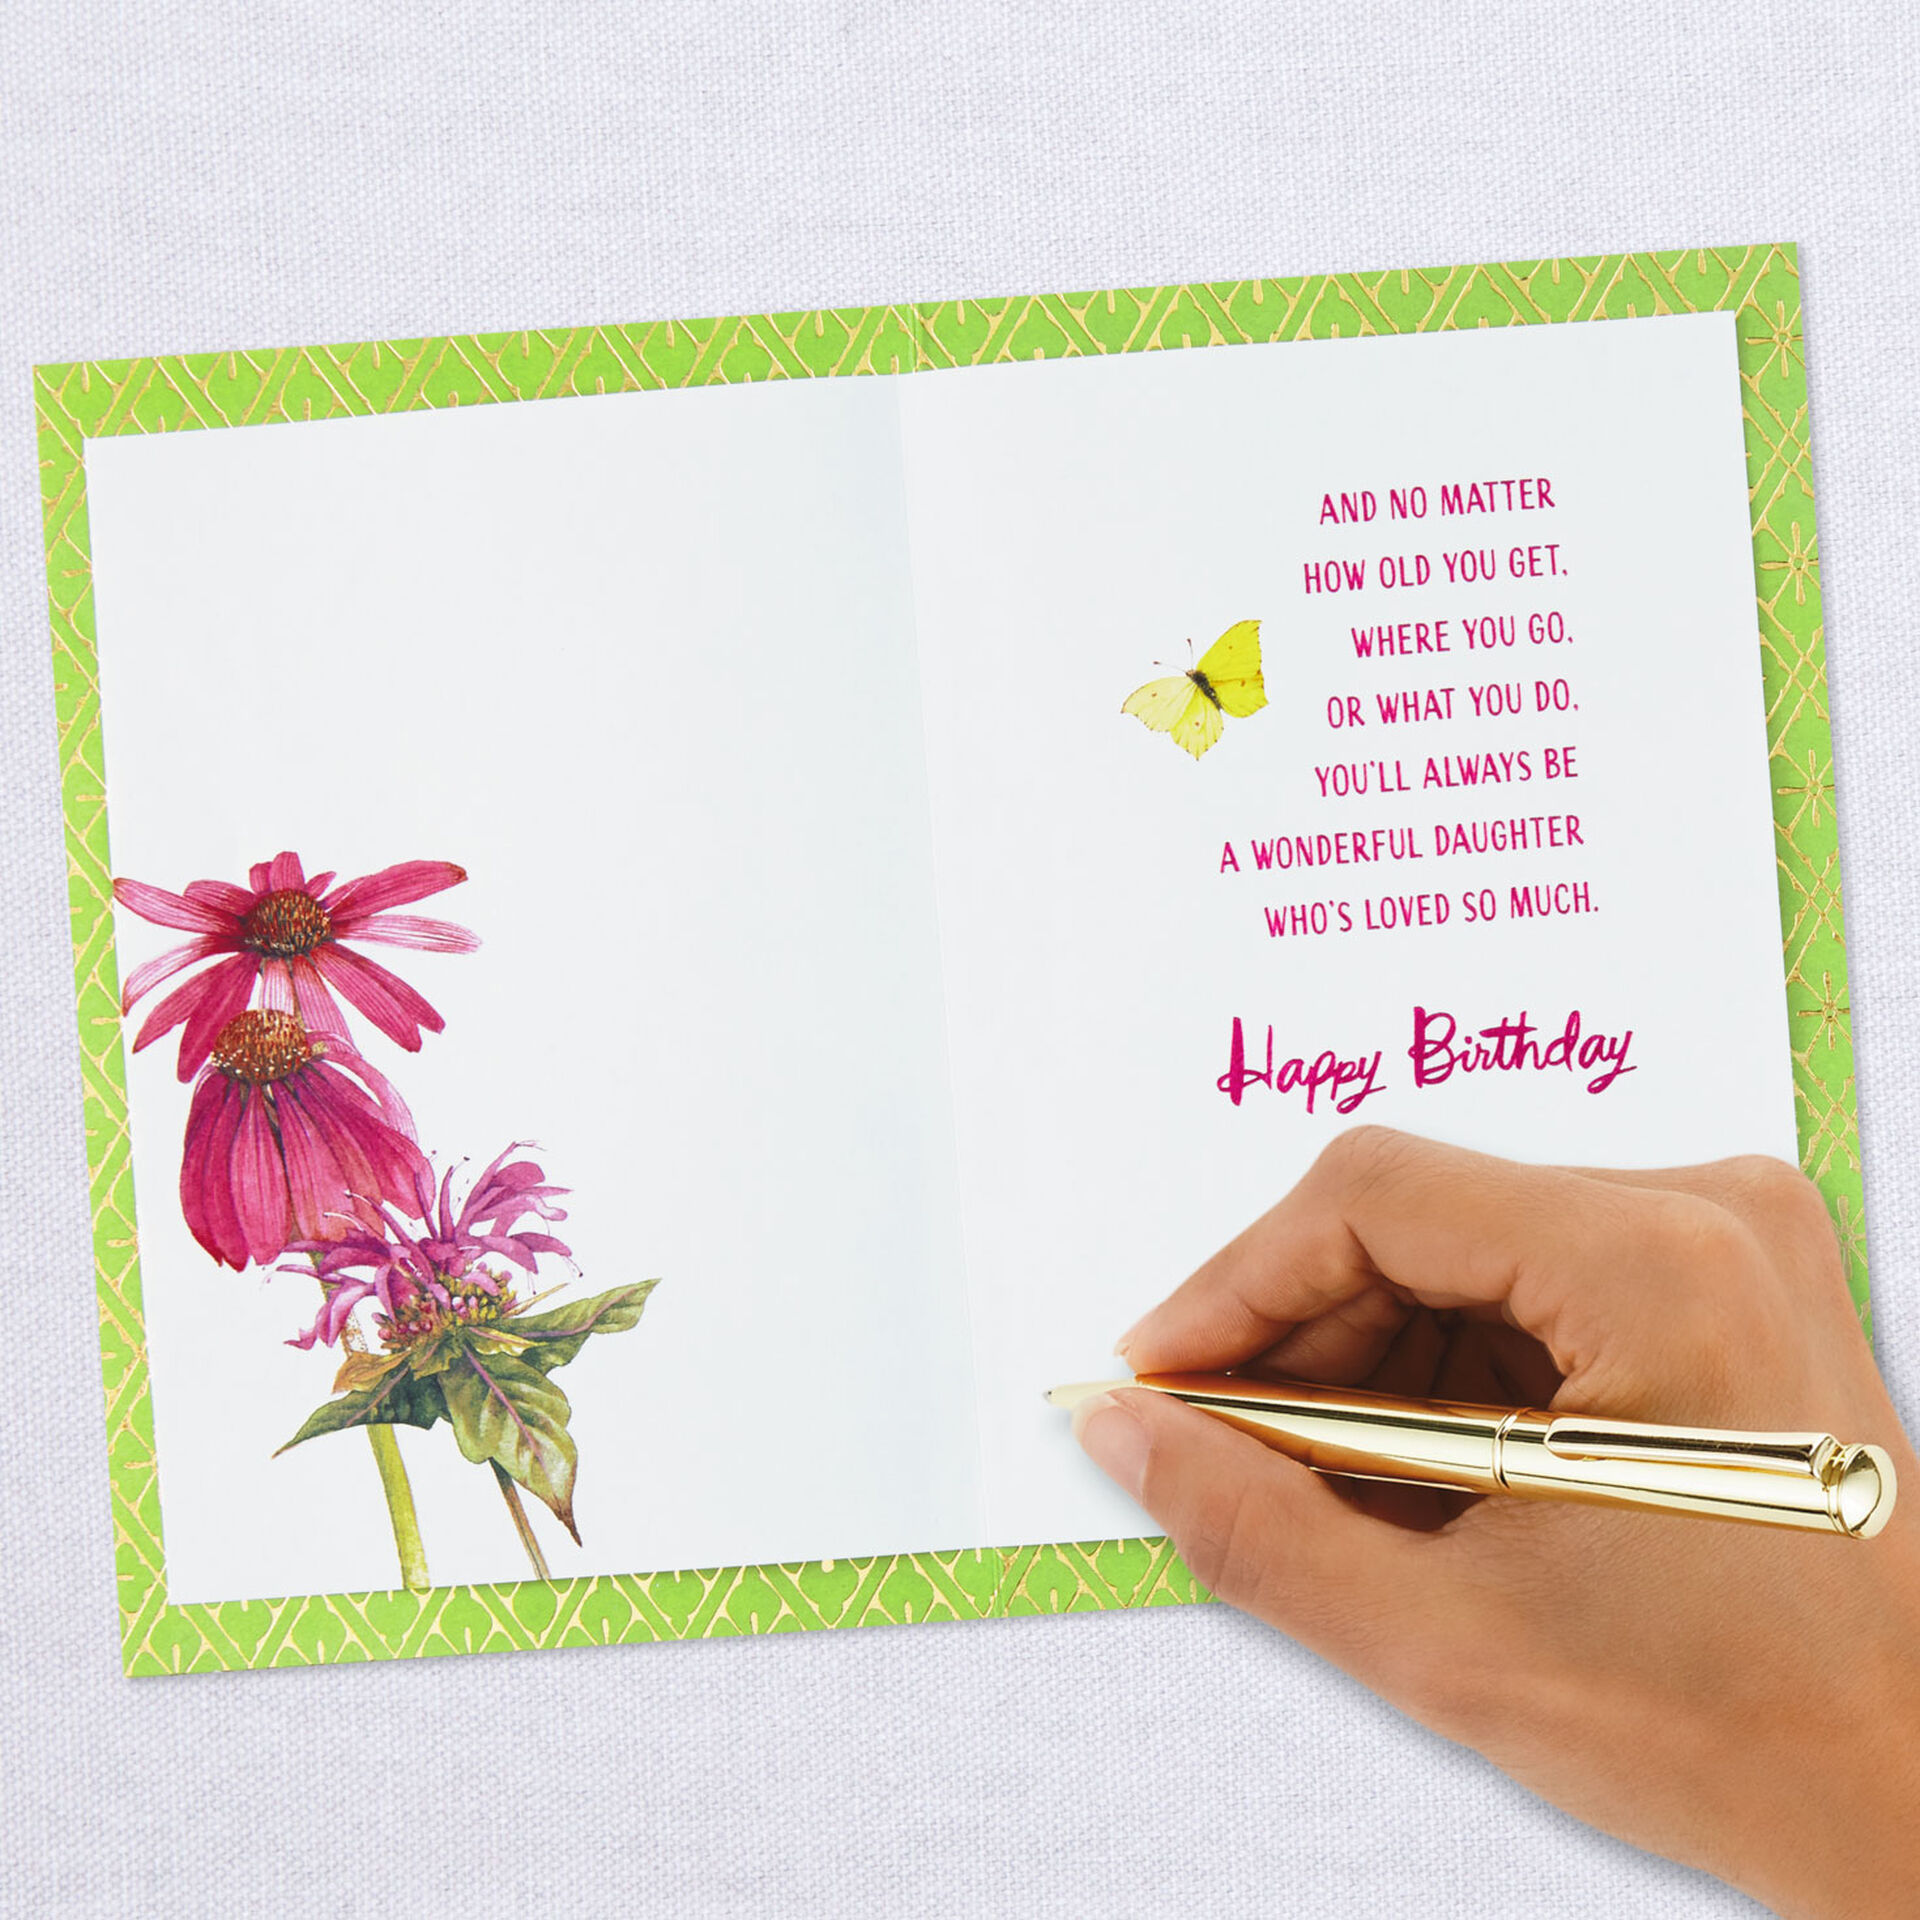 AND NO MATTER
HOW OLD YOU GET,
WHERE YOU GO,
OR WHAT YOU DO,
YOU'LL ALWAYS BE
A WONDERFUL DAUGHTER
WHO'S LOVED SO MUCH.
Happy Birthday